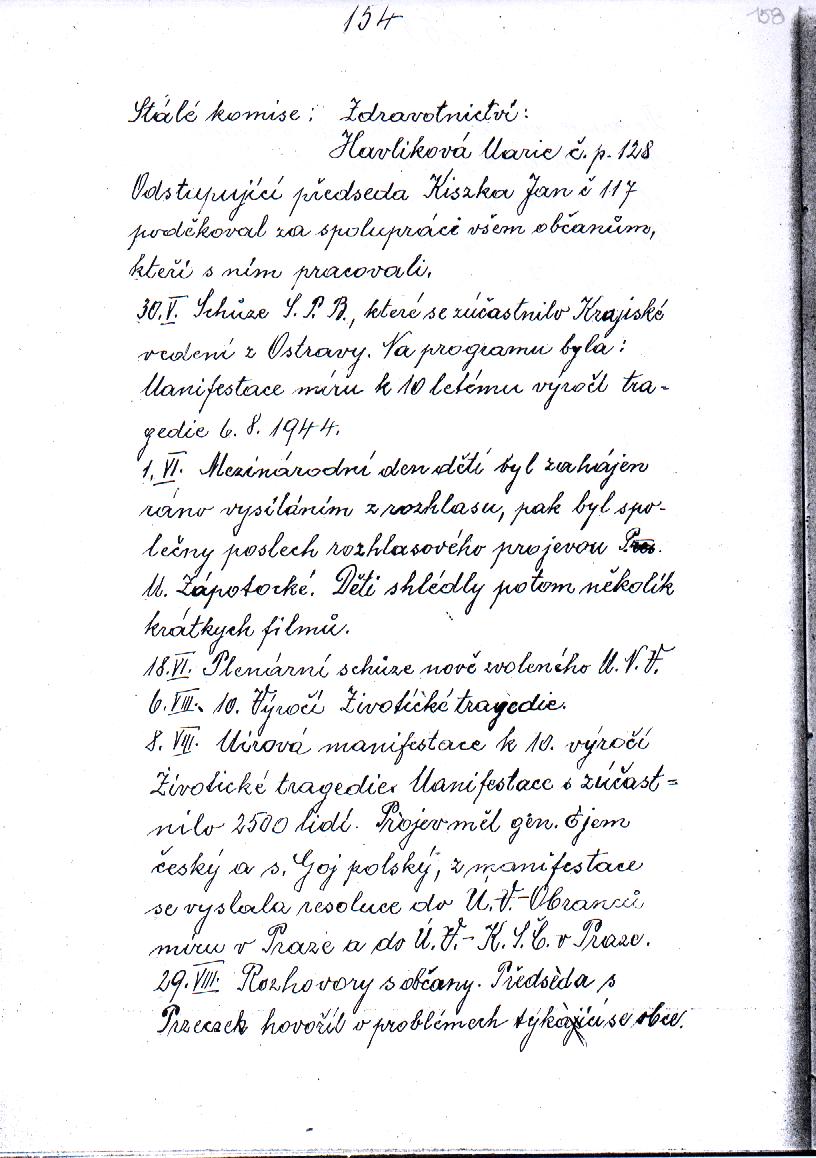 154
158
Stálé komise: Zdravotnictví:
Havlíková Marie č. p. 128
Odstupující předseda Kiszka Jan č 117
poděkoval za spolupráci všem občanům,
kteří s ním pracovali.
30.V. Schůze S. P. B., které se zúčastnilo Krajské
vedení z Ostravy. Na programu byla:
Manifestace míru k 10 letému výročí tra-
gedie 6. 8. 1944.
1. VI. Mezinárodní den dětí byl zahájen
ráno vysíláním z rozhlasu, pak byl spo-
lečny poslech rozhlasového projevou Pres.
M. Zápotocké. Děti shlédly potom několik
krátkych filmů.
18.VI. Plenární schůze nově zvoleného M. N. V.
6. VIII. 10. Výročí Životické tragedie.
8. VIII. Mírová manifestace k 10. výročí
Životické tragedie. Manifestace s zúčast=
nilo 2500 lidí. Projev měl gen. Ejem
český a s. Goj polský, z manifestace
se vyslala resoluce do Ú. V.-Obranců
míru v Praze a do Ú. V.- K. S. Č. v Praze.
29. VIII. Rozhovory s občany. Předseda s
Przeczek hovořil o problémech týkající se obce.